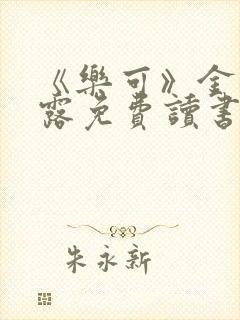 《樂可》金
露免費讀書
朱永新